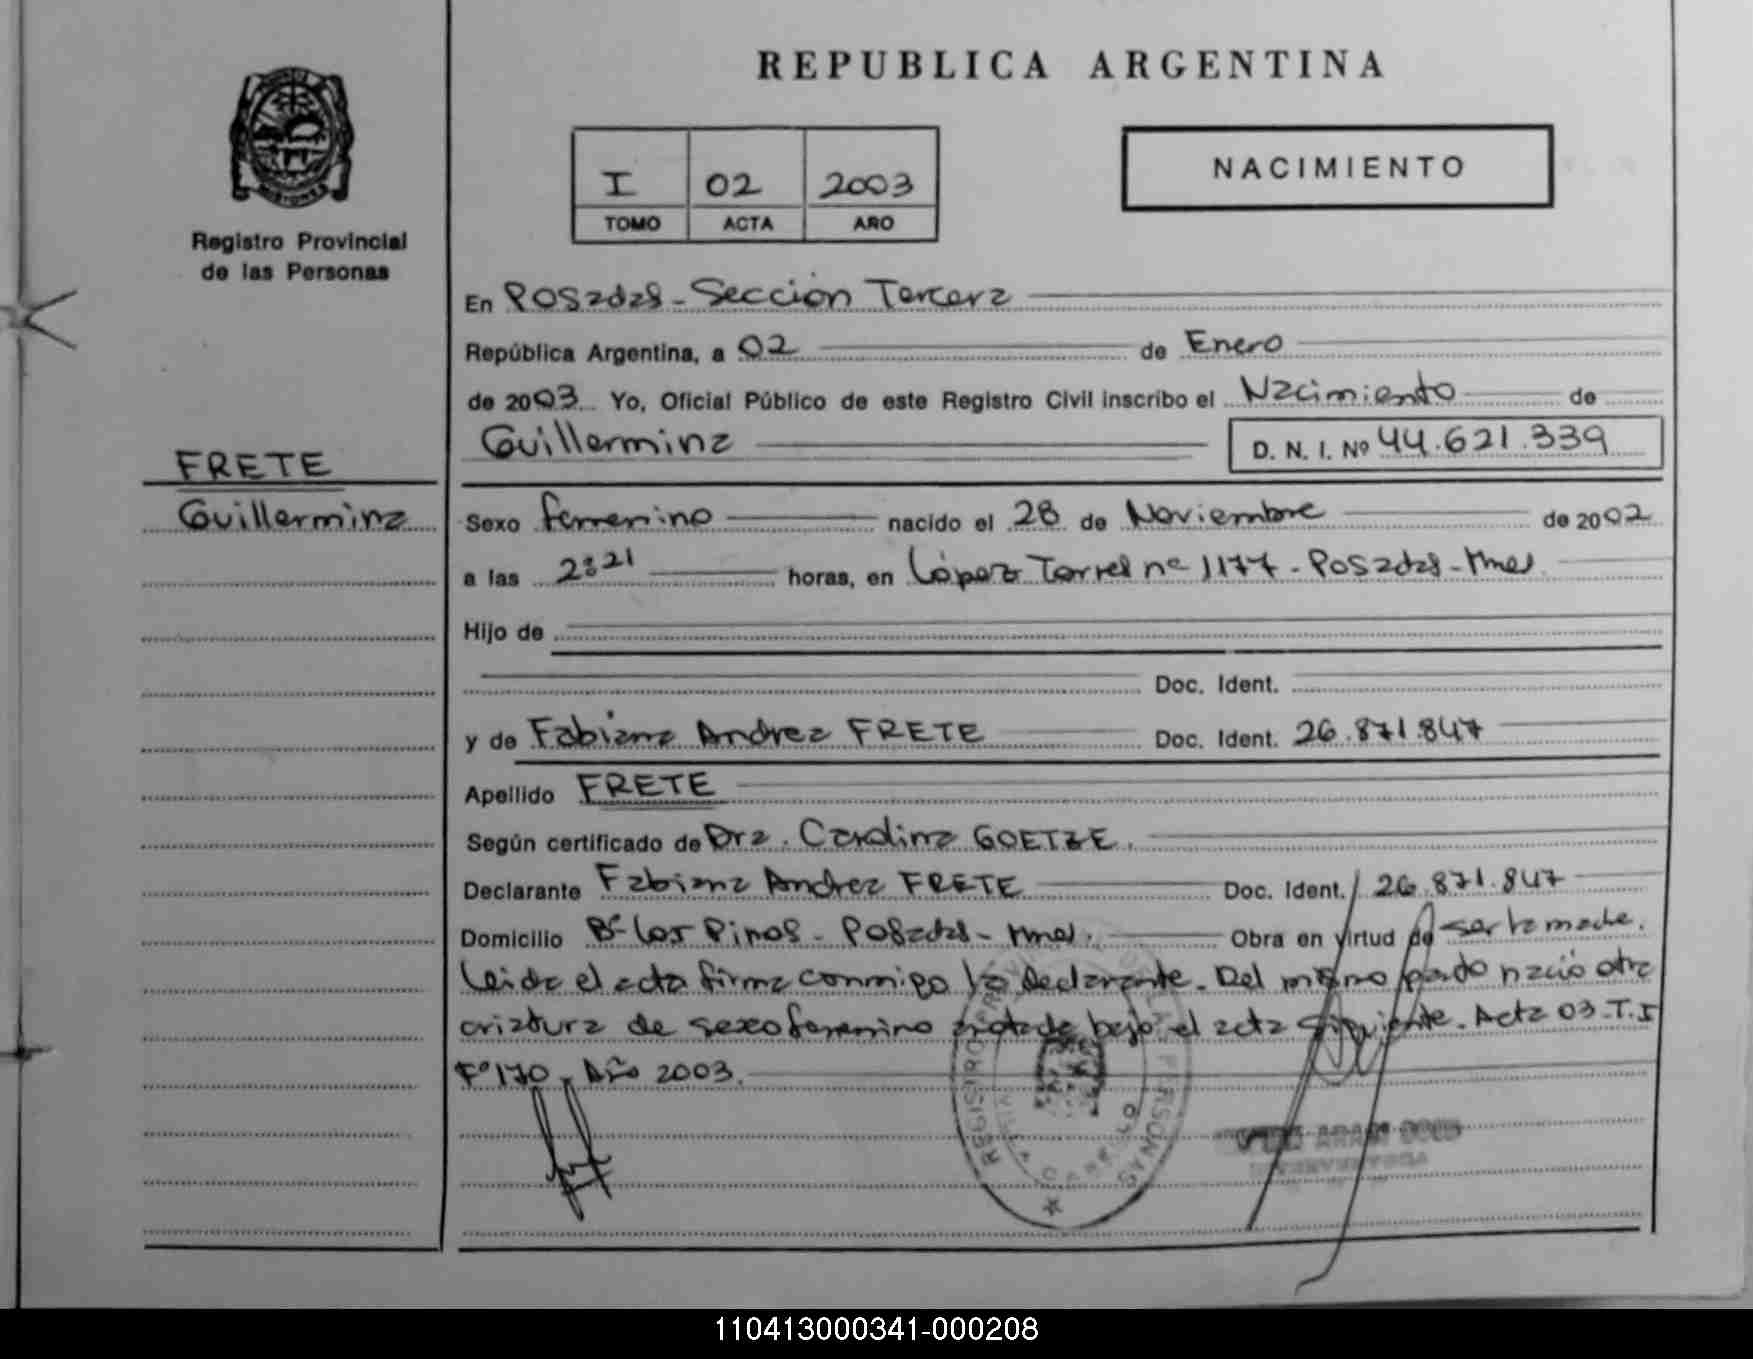 REPUBLICA ARGENTINA
MISIONES
Registro Provincial
de las Personas
I 02 2003
TOMO ACTA AÑO
NACIMIENTO
En Posadas - Sección Tercera
República Argentina, a 02 de Enero
de 2003 Yo, Oficial Público de este Registro Civil inscribo el Nacimiento de
Guillermina D. N. I. Nº 44.621.339
FRETE
Guillermina
Sexo femenino nacido el 28 de Noviembre de 2002
a las 2:21 horas, en López Torres nº 1177 - Posadas - Mnes
Hijo de
Doc. Ident.
y de Fabiana Andrea FRETE Doc. Ident. 26.871.847
Apellido FRETE
Según certificado de Dra. Carolina GOETZE.
Declarante Fabiana Andrea FRETE Doc. Ident. 26.871.847
Domicilio Bº Los Pinos - Posadas - Mnes. Obra en virtud de ser la madre.
Leida el acta firma conmigo la declarante. Del mismo parto nació otra
criatura de sexo femenino anotada bajo el acta siguiente. Acta 03 - T. I
Fº 170 - Año 2003.
REGISTRO PROVINCIAL DE LAS PERSONAS
110413000341-000208